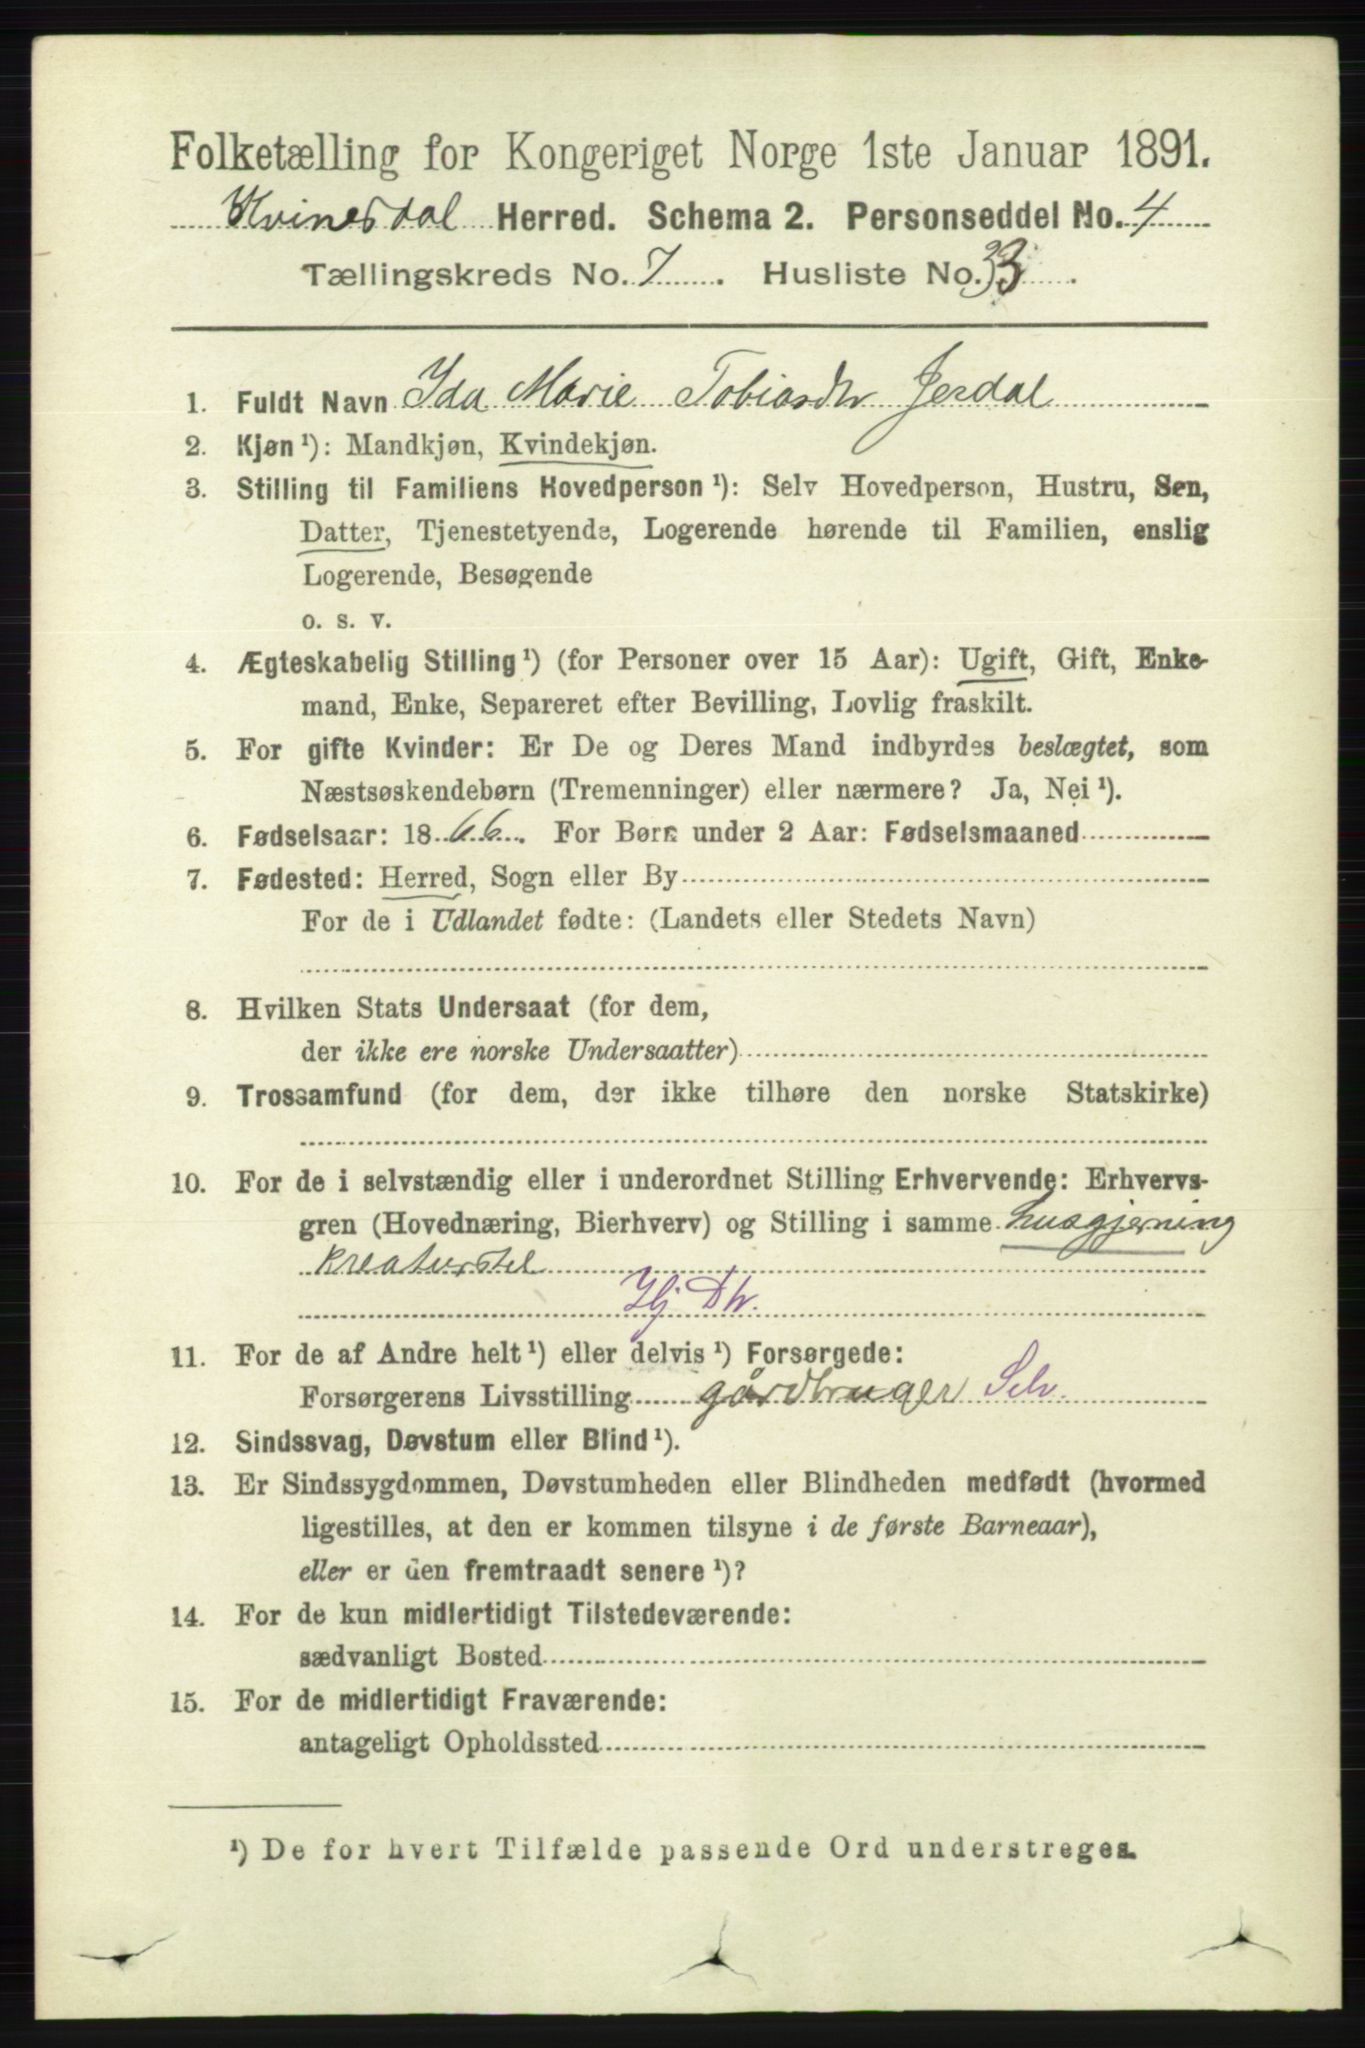 Folketælling for Kongeriget Norge 1ste Januar 1891.
Kvinesdal Herred. Schema 2. Personseddel No. 4
Tællingskreds No. 7. Husliste No. 33.
1. Fuldt Navn Ida Marie Tobiasdtr Jerdal
2. Kjøn ¹): Mandkjøn, Kvindekjøn.
3. Stilling til Familiens Hovedperson ¹): Selv Hovedperson, Hustru, Søn,
Datter, Tjenestetyende, Logerende hørende til Familien, enslig
Logerende, Besøgende
o. s. v.
4. Ægteskabelig Stilling ¹) (for Personer over 15 Aar): Ugift, Gift, Enke-
mand, Enke, Separeret efter Bevilling, Lovlig fraskilt.
5. For gifte Kvinder: Er De og Deres Mand indbyrdes beslægtet, som
Næstsøskendebørn (Tremenninger) eller nærmere? Ja, Nei ¹).
6. Fødselsaar: 1866. For Børn under 2 Aar: Fødselsmaaned
7. Fødested: Herred, Sogn eller By
For de i Udlandet fødte: (Landets eller Stedets Navn)
8. Hvilken Stats Undersaat (for dem,
der ikke ere norske Undersaatter)
9. Trossamfund (for dem, der ikke tilhøre den norske Statskirke)
10. For de i selvstændig eller i underordnet Stilling Erhvervende: Erhvervs-
gren (Hovednæring, Bierhverv) og Stilling i samme husgjerning
kreaturstel
Hj Dtr.
11. For de af Andre helt ¹) eller delvis ¹) Forsørgede:
Forsørgerens Livsstilling gårdbruger Selv.
12. Sindssvag, Døvstum eller Blind ¹).
13. Er Sindssygdommen, Døvstumheden eller Blindheden medfødt (hvormed
ligestilles, at den er kommen tilsyne i de første Barneaar),
eller er den fremtraadt senere ¹)?
14. For de kun midlertidigt Tilstedeværende:
sædvanligt Bosted
15. For de midlertidigt Fraværende:
antageligt Opholdssted
¹) De for hvert Tilfælde passende Ord understreges.